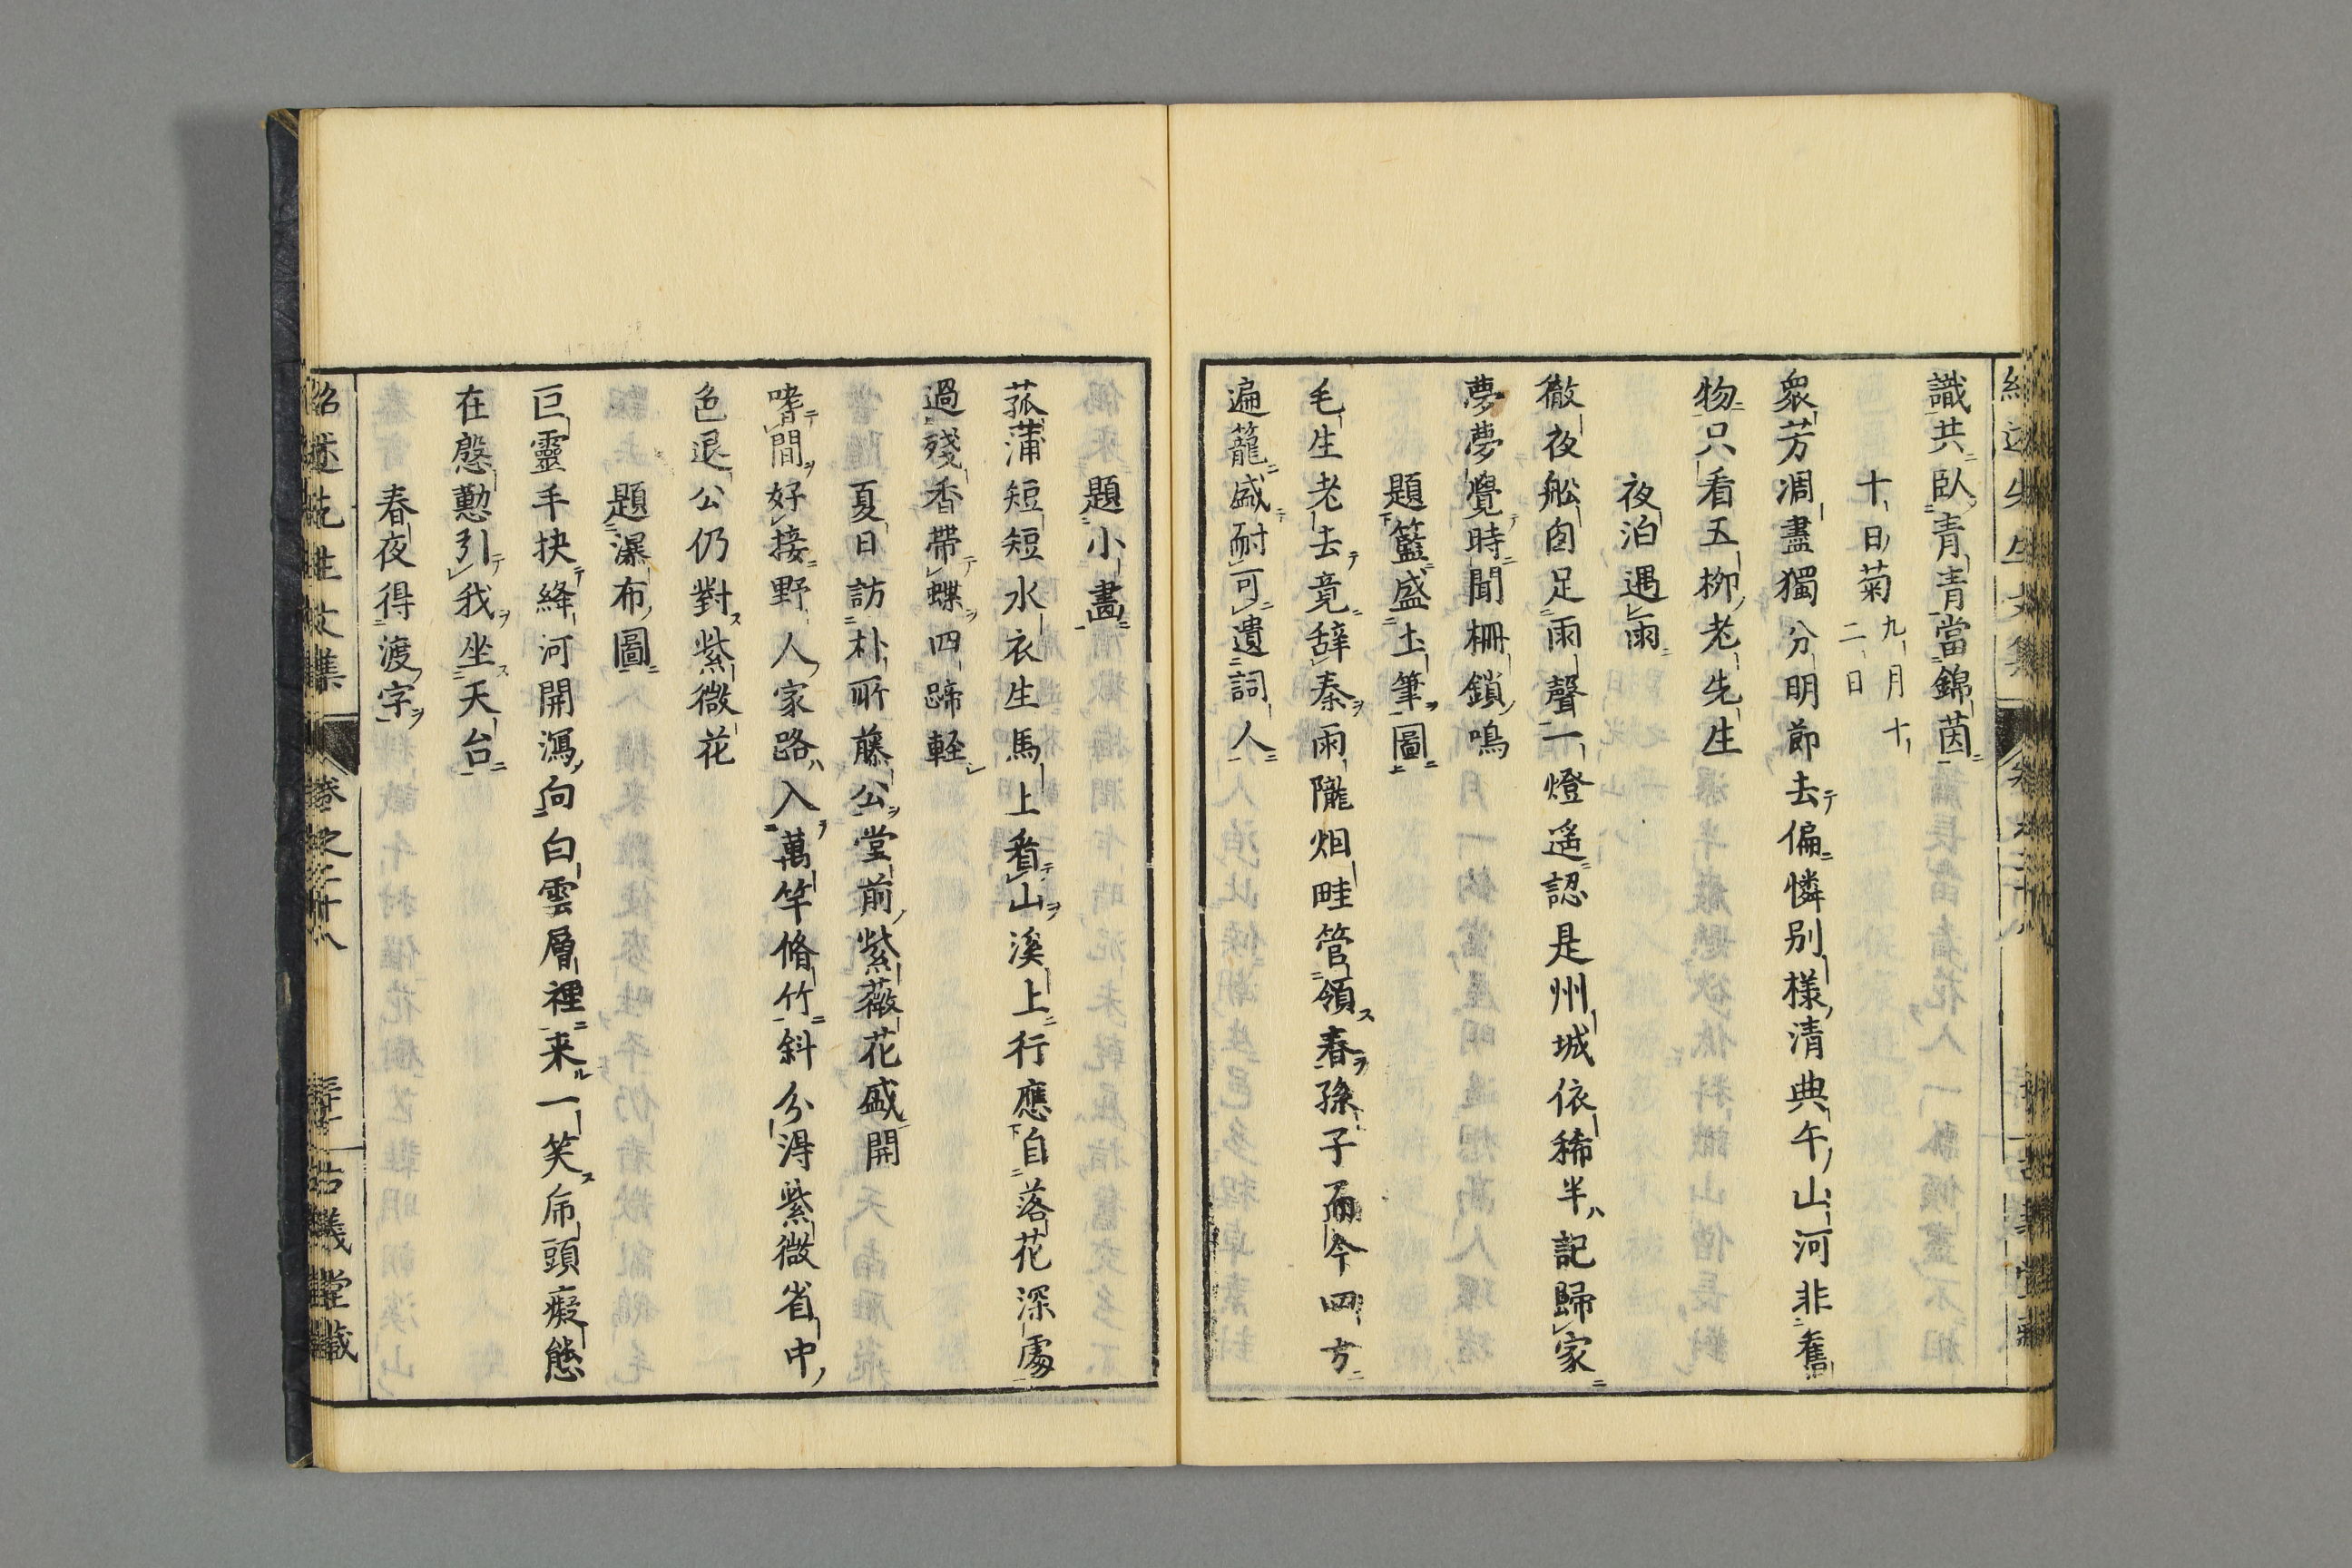 識共臥青青當錦茵
十日菊 九月十二日
衆芳凋盡獨分明節去偏憐别樣清典午山河非舊
物只看五柳老先生
夜泊遇雨
徹夜舩窓足雨聲一燈遙認是州城依稀半記歸家
夢夢覺時聞柵鎖鳴
題籃盛土筆圖
毛生老去竟辞秦雨隴烟畦管領春孫子而今四方
遍籠盛耐可遺詞人
題小畫
菰蒲短短水衣生馬上看山溪上行應自落花深處
過殘香帶蝶四蹄軽
夏日訪朴所藤公堂前紫薇花盛開
嗜間好接野人家路入萬竿脩竹斜分得紫微省中
色退公仍對紫微花
題瀑布圖
巨靈手抉絳河開瀉向白雲層裡来一笑帋頭癡態
在慇懃引我坐天台
春夜得渡字
紹述先生文集 卷之二十八 古義堂藏